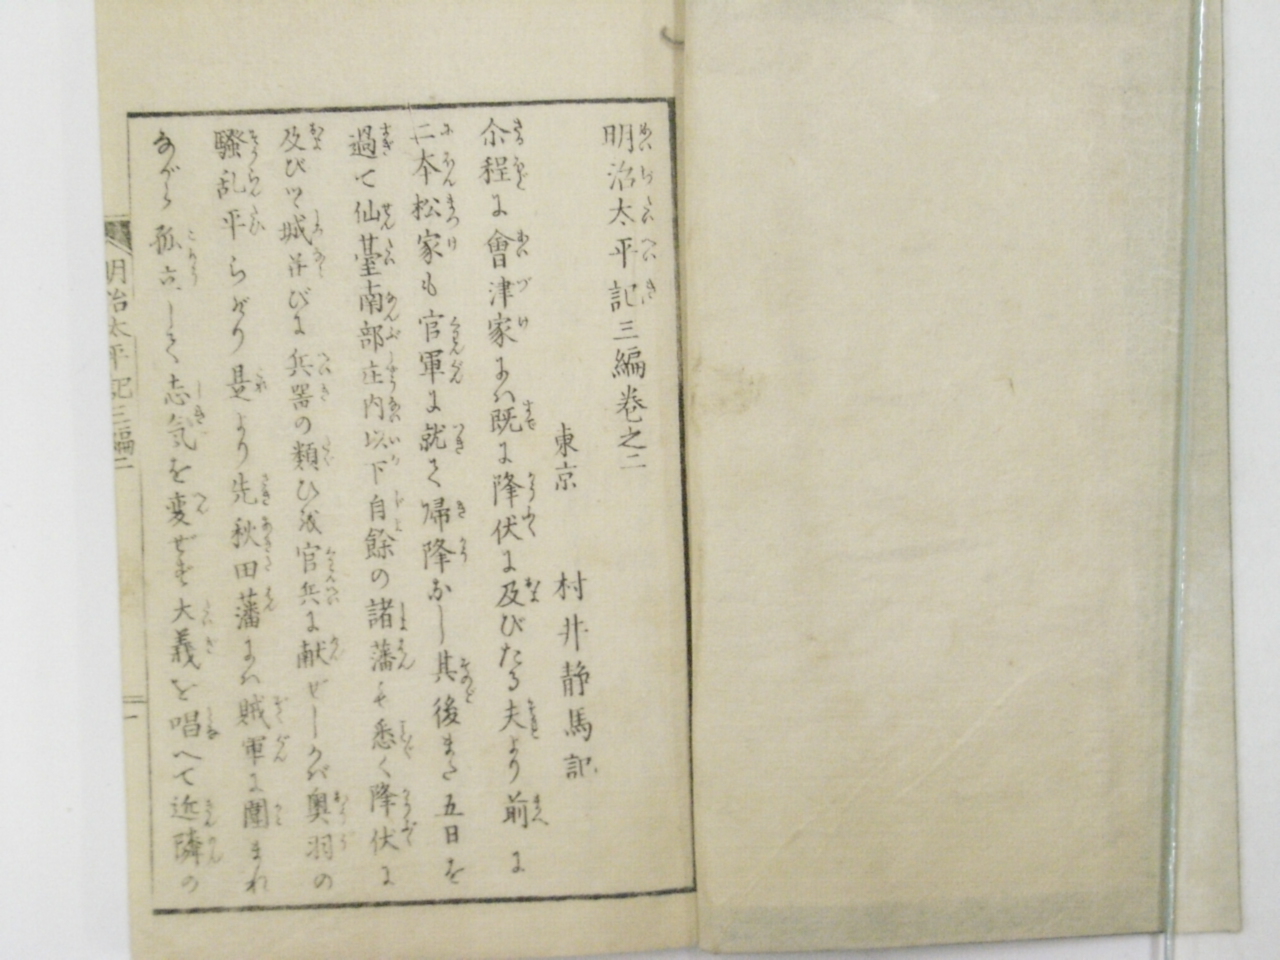 明治太平記三編巻之二
東京 村井静馬記
尒程に會津家にハ既に降伏に及びたる夫より前に
二本松家も官軍に就て帰降なし其後また五日を
過て仙臺南部庄内以下自餘の諸藩も悉く降伏に
及びツヽ城并びに兵器の類ひ或官兵に献ぜしかバ奥羽の
騒乱平らぎけり是より先秋田藩にハ賊軍に圍まれ
ながら孤立して志気を変ぜず大義を唱へて近隣の
明治太平記三編二
一